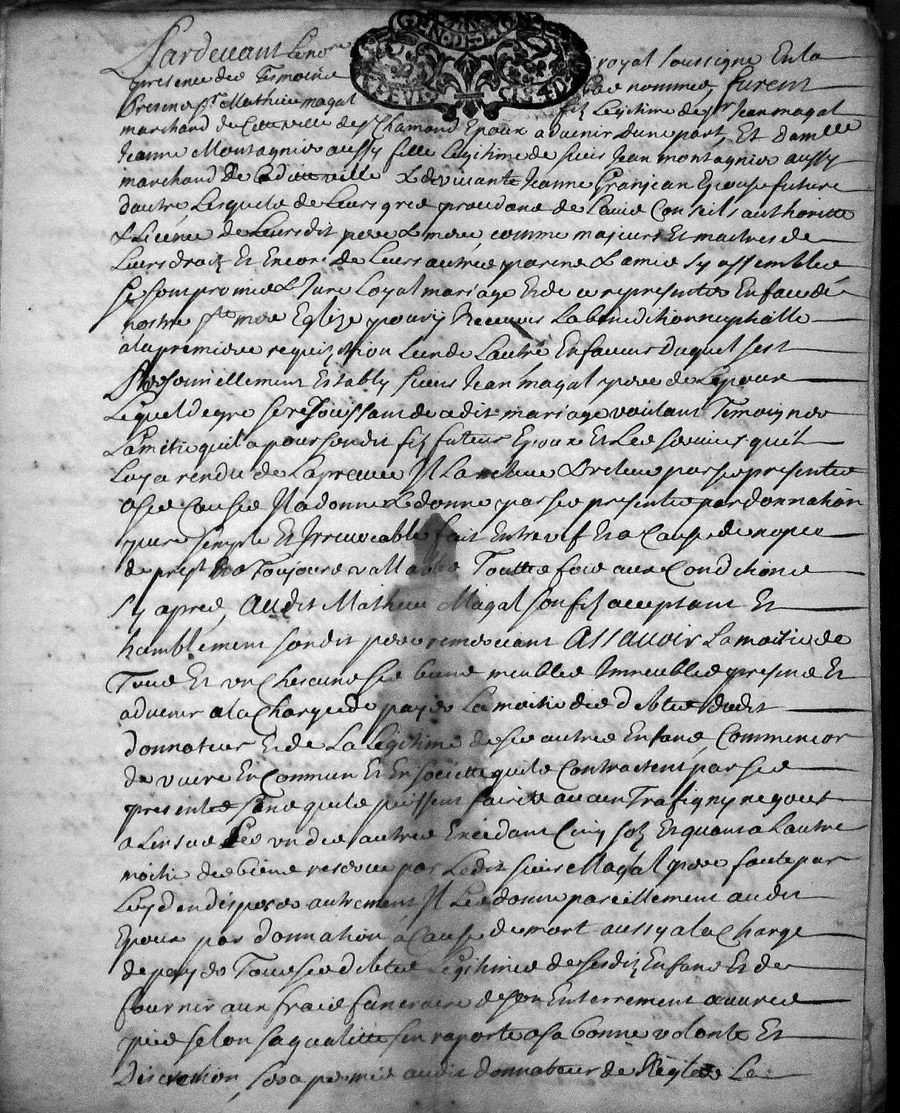 Pardevant le no.re royal soussigne En la
presence des Temoins bas nommes, furent
Presens s.r Mathieu magal filz legitime de s.r Jean magal
marchand de Cette ville de s.t Chamond Epoux a advenir d'une part, Et dam.lle
Jeanne Montagnier aussy fille legitime de sieur Jean montagnier aussy
marchand de ladite ville & de vivante Jeanne Granjean Epouse future
d'autre, Lesquels de leurs gres procedant de l'avis Conseils authoritte
& licence de leursdit pere & mere, comme majeurs Et maitres de
Leurs droitz Et Encore de leurs autres parens & amis sy assembles
se sont promis & Jure loyal mariage Et de ce representer En face de
nostre s.te mere Eglize pour y Recevoir La benediction nuphialle
a la premiere requizition l'un de l'autre En faveur duquel s'est
Personnellement Estably sieur Jean magal pere de l'epoux
Lequel de gre se rejouissant de cedit mariage voulant Temoigner
L'amitie qu'il a pour sondit filz futeur Epoux Et les services qu'il
Luy a rendu de la preuve Il l'a releve & releve par ses presentes
a ses Causes Il a donne & donne par ses presentes par donnation
pure simple Et Irrevocable fait Entre vif Et a Cause de nopces
de pres.t Et a Toujours vallable Toutte fois aux Conditions
sy apres, Audit Mathieu Magal son filz acceptant Et
humblement sondit pere remerciant Assavoir La moitie de
Tous Et un Chescuns ses biens meubles Immeubles presens Et
advenir a la Charge de payer La moitie des debtes dudit
donnateur Et de La Legitime de ses autres Enfans, Commencer
de vivre En Commun Et En Societte qu'ils Contractent par ses
presentes sans qu'ils puissent faire aucun Trafiq ny negoce
a l'insceu Les uns des autres Excedant Cinq solz Et quant a l'autre
moitie des biens reserve par Ledit sieur Magal pere faute par
Luy d'en disposer autrement Il Les donne pareillement audit
Epoux par donnation a Cause de mort aussy a la Charge
de payer Tous ses debtes Legitimes de sesditz Enfans Et de
fournir aux frais funeraires de son Enterrement & oeuvres
pies selon sa qualitte s'en raporte a sa bonne volonte Et
Discretion, sera permis audit donnateur de Regler Le